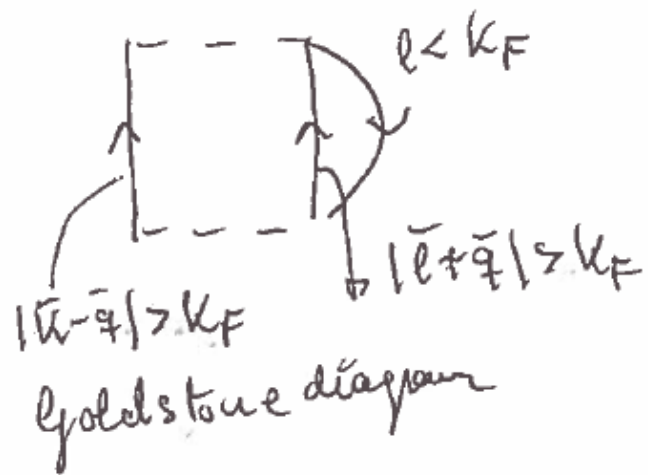 l < K_F
|l̄ + q̄| > K_F
|k̄ - q̄| > K_F
Goldstone diagram